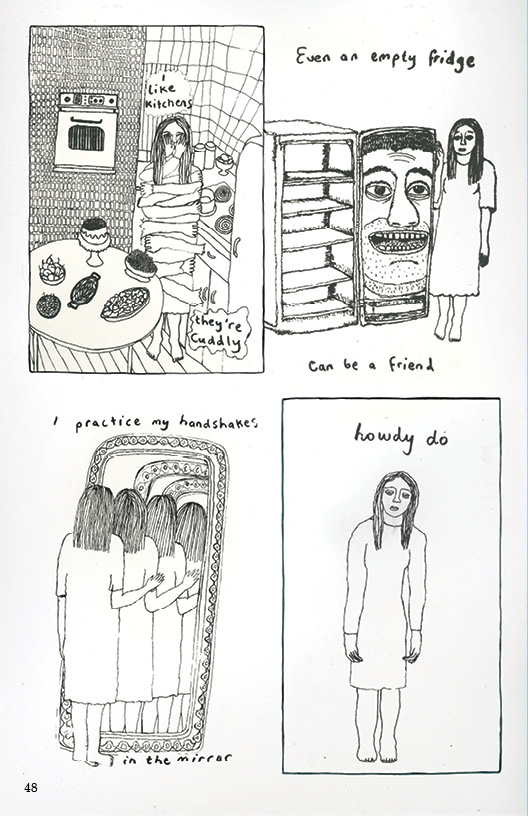 I
like
kitchens
they're
cuddly
Even an empty fridge
can be a friend
I practice my handshakes
in the mirror
howdy do
48